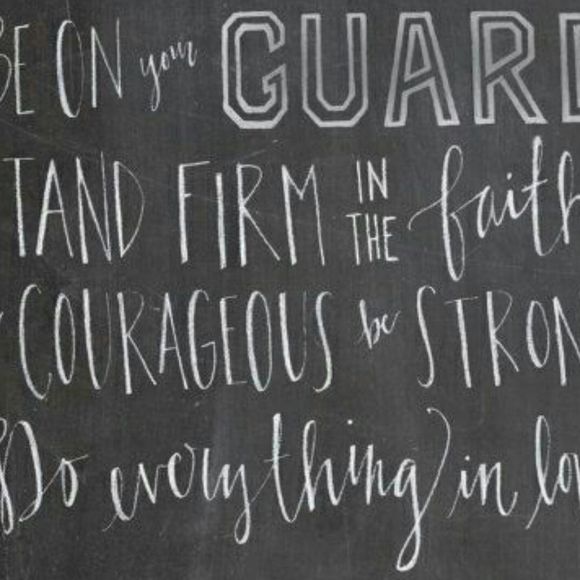 BE ON your GUARD
TAND FIRM IN THE faith
COURAGEOUS be STRON
Do everything in lov